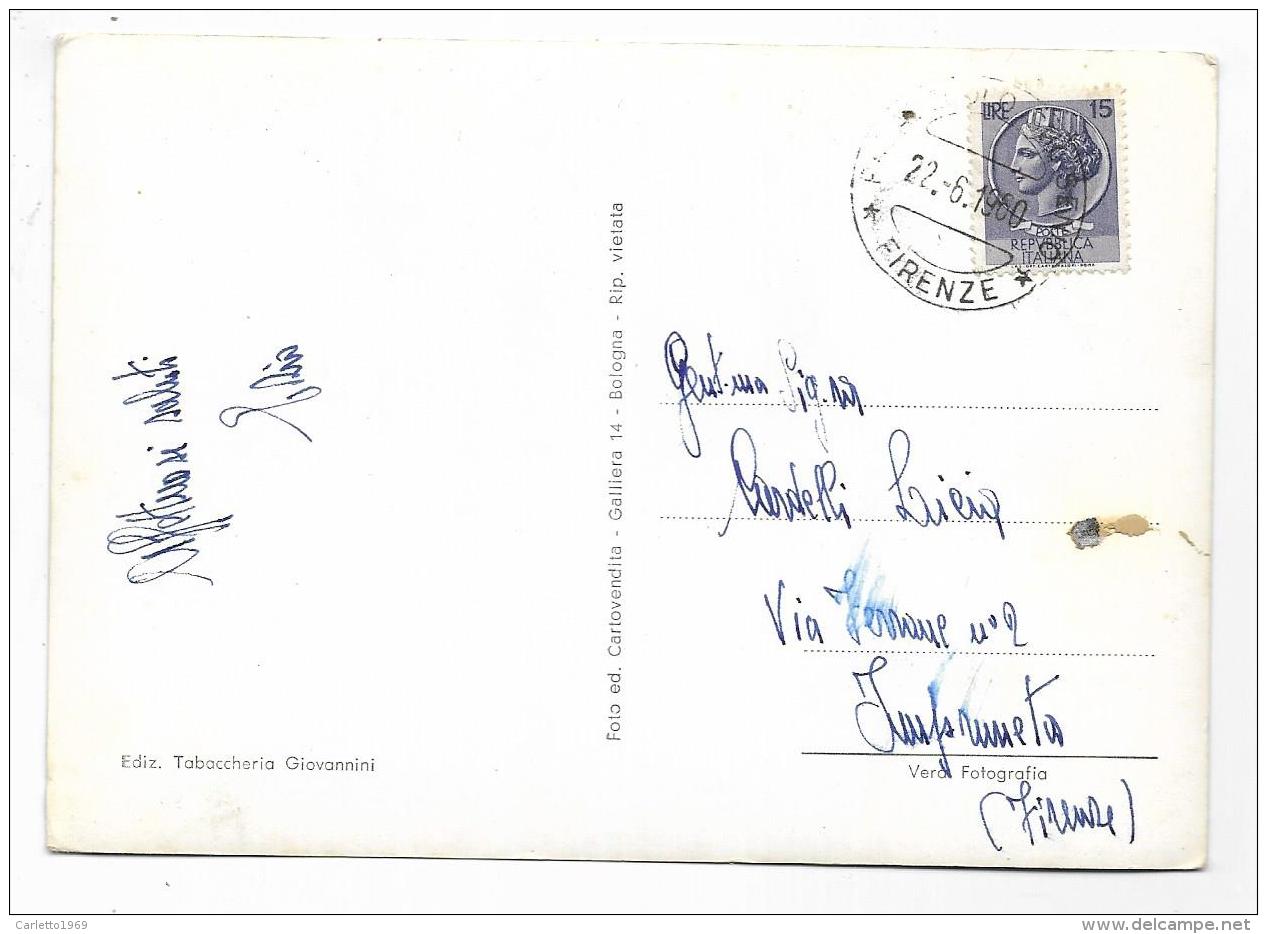 Affettuosi saluti
Ediz. Tabaccheria Giovannini
Foto ed. Cartovendita - Galliera 14 - Bologna - Rip. vietata
LIRE 15
POSTE
REPVBBLICA
ITALIANA
22.-6.1960
* FIRENZE *
Gent.ma Sig.ra
Bardelli Licia
Via Ferrone n° 2
Impruneta
Vera Fotografia
(Firenze)
Carletto1969
www.delcampe.net